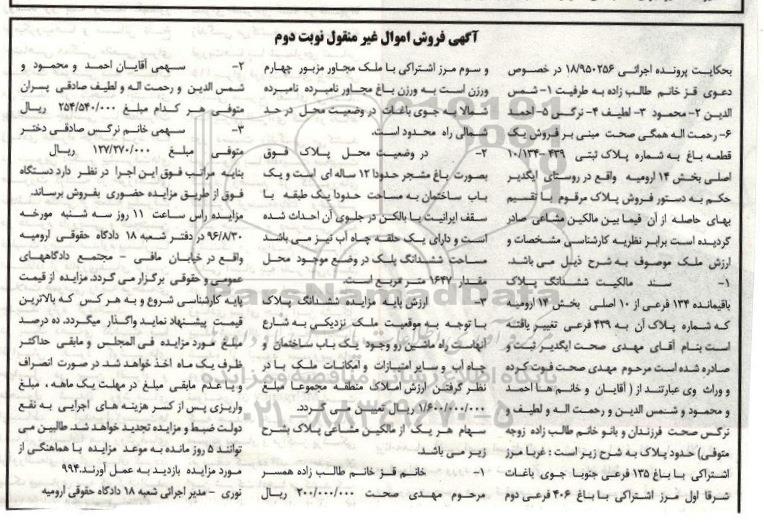 آگهی فروش اموال غیر منقول نوبت دوم
بحکایت پرونده اجرائی ۱۸/۹۵۰۲۵۶ در خصوص
دعوی قز خانم طالب زاده به طرفیت ۱- شمس
الدین ۲- محمود ۳- لطیف ۴- نرگس ۵- احمد
۶- رحمت اله همگی صحت مبنی بر فروش یک
قطعه باغ به شماره پلاک ثبتی ۴۳۹- ۱۰/۱۳۴
اصلی بخش ۱۴ ارومیه واقع در روستای ایگدیر
حکم به دستور فروش پلاک مرقوم با تقسیم
بهای حاصله از آن فیما بین مالکین مشاعی صادر
گردیده است برابر نظریه کارشناسی مشخصات و
ارزش ملک موصوف به شرح ذیل می باشد.
۱- سند مالکیت ششدانگ پلاک
باقیمانده ۱۳۴ فرعی از ۱۰ اصلی بخش ۱۴ ارومیه
که شماره پلاک آن به ۴۳۹ فرعی تغییر یافته
است بنام آقای مهدی صحت ایگدیر ثبت و
صادره شده است مرحوم مهدی صحت فوت کرده
و وراث وی عبارتند از ( آقایان و خانم ها احمد
و محمود و شمس الدین و رحمت اله و لطیف و
نرگس صحت فرزندان و بانو خانم طالب زاده زوجه
متوفی) حدود پلاک به شرح زیر است : غربا مرز
اشتراکی با باغ ۱۳۵ فرعی جنوبا جوی باغات
شرقا اول مرز اشتراکی با باغ ۴۰۶ فرعی دوم
و سوم مرز اشتراکی با ملک مجاور مزبور چهارم
ورزن است به ورزن باغ مجاور نامبرده نامبرده
شمالا به جوی باغات در وضعیت محل در حد
شمالی راه محدود است.
۲- در وضعیت محل پلاک فوق
بصورت باغ مشجر حدودا ۱۲ ساله ای است و یک
باب ساختمان به مساحت حدودا یک طبقه با
سقف ایرانیت با بالکن در جلوی آن احداث شده
است و دارای یک حلقه چاه آب نیز می باشد
مساحت ششدانگ پلک در وضع موجود محل
مقدار ۱۶۴۷ متر مربع است.
۳- ارزش پایه مزایده ششدانگ پلاک
با توجه به موقعیت ملک نزدیکی به شارع
آنهاست راه ماشین رو وجود یک باب ساختمان و
چاه آب و سایر امتیازات و امکانات ملک با در
نظر گرفتن ارزش املاک منطقه مجموعا مبلغ
۱/۶۰۰/۰۰۰/۰۰۰ ریال تعیین می گردد.
سهام هر یک از مالکین مشاعی پلاک بشرح
زیر می باشد
۱- خانم قز خانم طالب زاده همسر
مرحوم مهدی صحت ۲۰۰/۰۰۰/۰۰۰ ریال
۲- سهمی آقایان احمد و محمود و
شمس الدین و رحمت اله و لطیف صادقی پسران
متوفی هر کدام مبلغ ۲۵۴/۵۴۰/۰۰۰ ریال
۳- سهمی خانم نرگس صادقی دختر
متوفی مبلغ ۱۲۷/۲۷۰/۰۰۰ ریال
بنابه مراتب فوق این اجرا در نظر دارد دستگاه
فوق از طریق مزایده حضوری بفروش برساند.
مزایده راس ساعت ۱۱ روز سه شنبه مورخه
۹۶/۸/۳۰ در دفتر شعبه ۱۸ دادگاه حقوقی ارومیه
واقع در خیابان مافی - مجتمع دادگاههای
عمومی و حقوقی برگزار می گردد. مزایده از قیمت
پایه کارشناسی شروع و به هر کس که بالاترین
قیمت پیشنهاد نماید واگذار میگردد. ده درصد
مبلغ مورد مزایده فی المجلس و مابقی حداکثر
ظرف یک ماه اخذ خواهد شد. در صورت انصراف
و یا عدم مابقی مبلغ در مهلت یک ماهه ، مبلغ
واریزی پس از کسر هزینه های اجرایی به نفع
دولت ضبط و مزایده تجدید خواهد شد. طالبین می
توانند ۵ روز مانده به موعد مزایده با هماهنگی از
مورد مزایده بازدید به عمل آورند.۹۹۴
نوری - مدیر اجرائی شعبه ۱۸ دادگاه حقوقی ارومیه